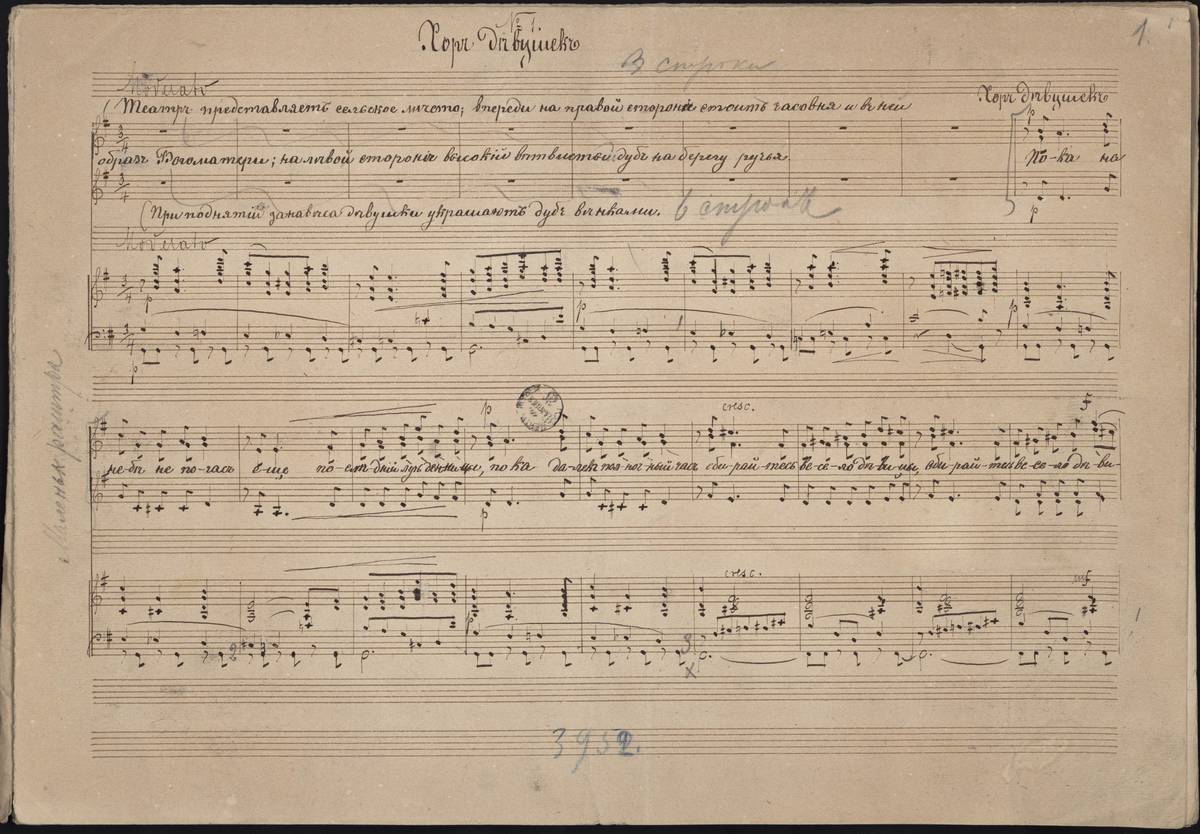 № 1.
Хоръ дѣвушекъ
1.
3 строки
Moderato
(Театръ представляетъ сельское мѣсто; впереди на правой сторонѣ стоитъ часовня и въ ней
Хоръ дѣвушекъ
p
3/4
образъ Богоматери; на лѣвой сторонѣ высокій вѣтвистый дубъ на берегу ручья.
По-ка на
3/4
p
(При поднятіи занавѣса дѣвушки украшаютъ дубъ вѣнками.
6 строкъ
Moderato
3/4
p
p
p
3/4
p
p
cresc.
f
не-бѣ не по-гасъ е-ще по-слѣд-ній лучъ ден-ни-цы, по-ка да-лекъ пол-ноч-ный часъ сби-рай-тесь ве-се-ло дѣ-ви-цы, сби-рай-тесь ве-се-ло дѣ-ви-
p
cresc.
mf
2
3
x
3952.